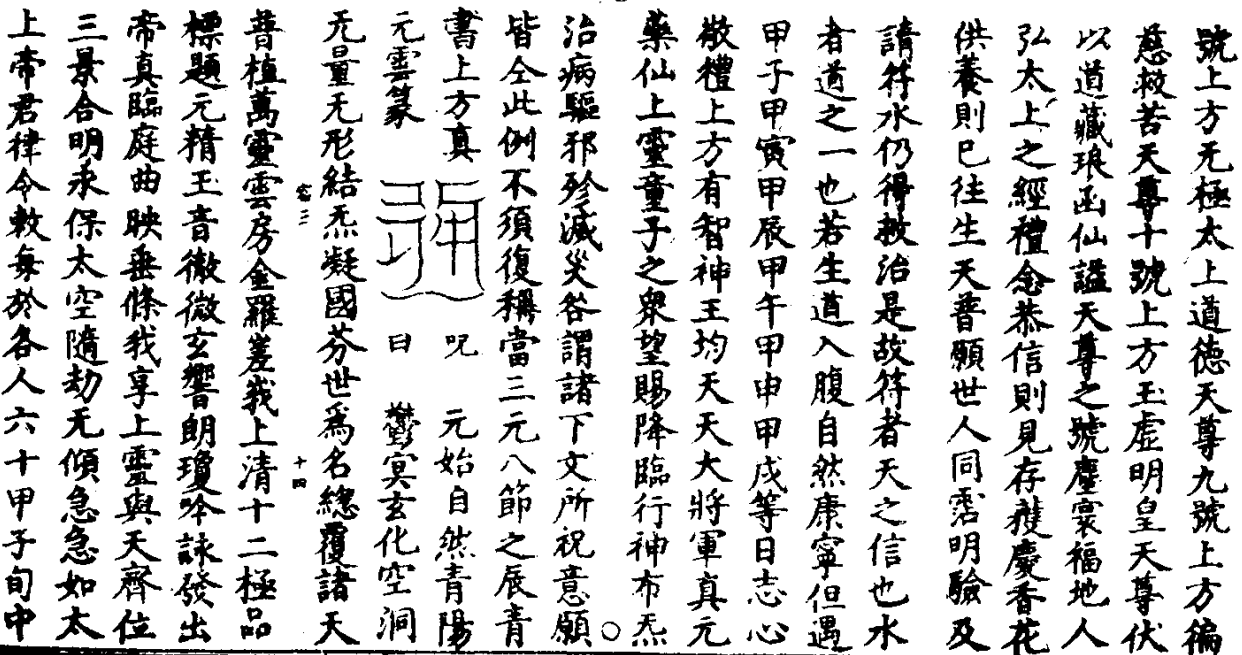 號上方无極太上道德天尊九號上方徧
慈救苦天尊十號上方玉虛明皇天尊伏
以道藏琅函仙諡天尊之號塵寰福地人
弘太上之經禮念恭信則見存獲慶香花
供養則已往生天普願世人同霑明驗及
請符水仍得救治是故符者天之信也水
者道之一也若生道入腹自然康寧但遇
甲子甲寅甲辰甲午甲申甲戌等日志心
敬禮上方有智神王均天天大將軍真元
藥仙上靈童子之眾望賜降臨行神布炁
治病驅邪殄滅災咎謂諸下文所祝意願○
皆仝此例不須復稱當三元八節之辰青
書上方真 呪 元始自然青陽
元雲篆 曰 鬱冥玄化空洞
无量无形結炁凝國芬世爲名總覆諸天
宕三 十四
普植萬靈雲房金羅嵳峩上清十二極品
標題元精玉音徹微玄響朗瓊吟詠發出
帝真臨庭曲映垂條我享上靈與天齊位
三景合明永保太空隨劫无傾急急如太
上帝君律令敕每於各人六十甲子旬中